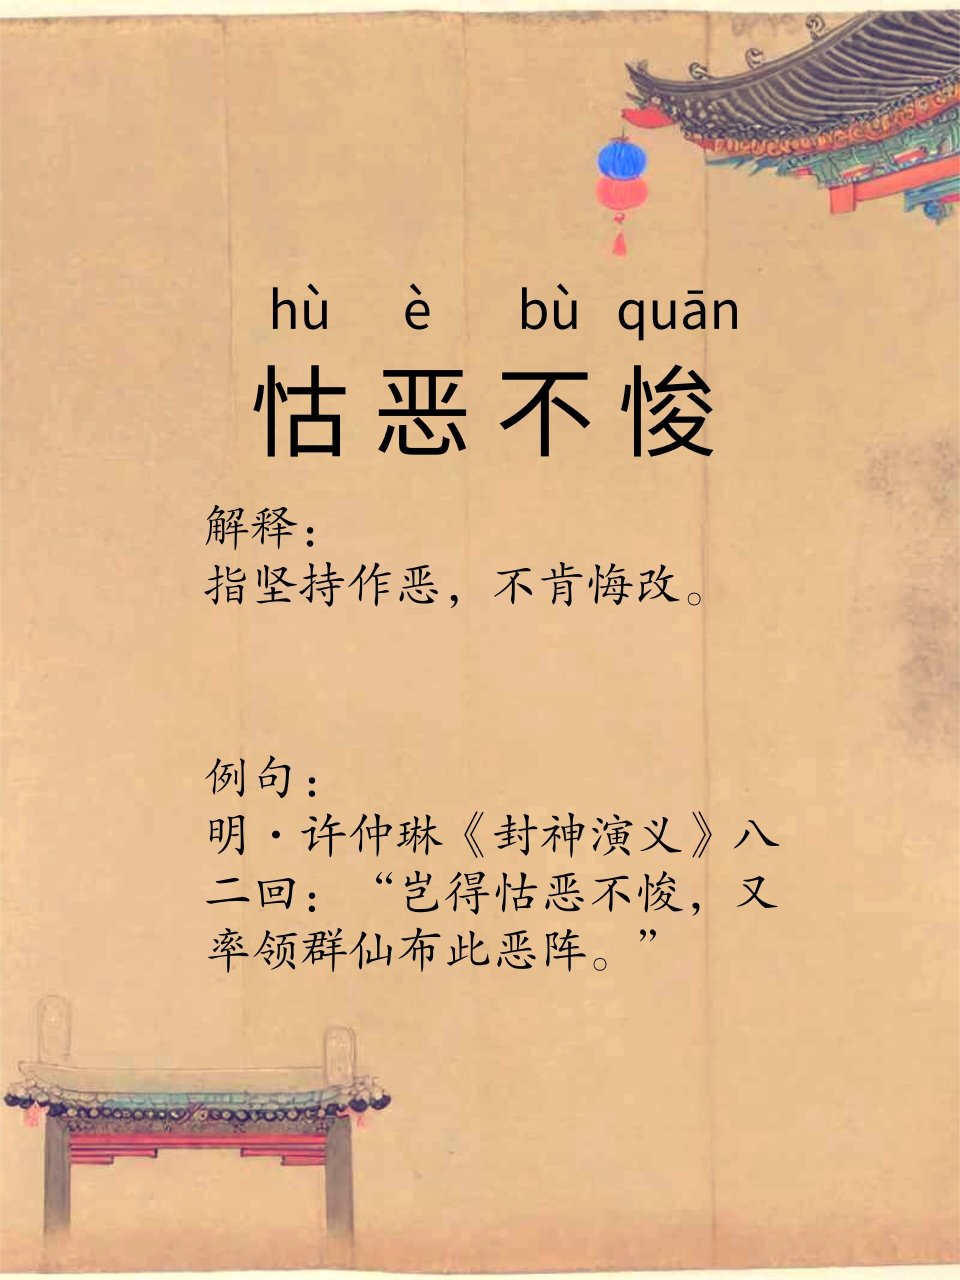 hù è bù quān
怙恶不悛
解释：
指坚持作恶，不肯悔改。
例句：
明·许仲琳《封神演义》八
二回：“岂得怙恶不悛，又
率领群仙布此恶阵。”